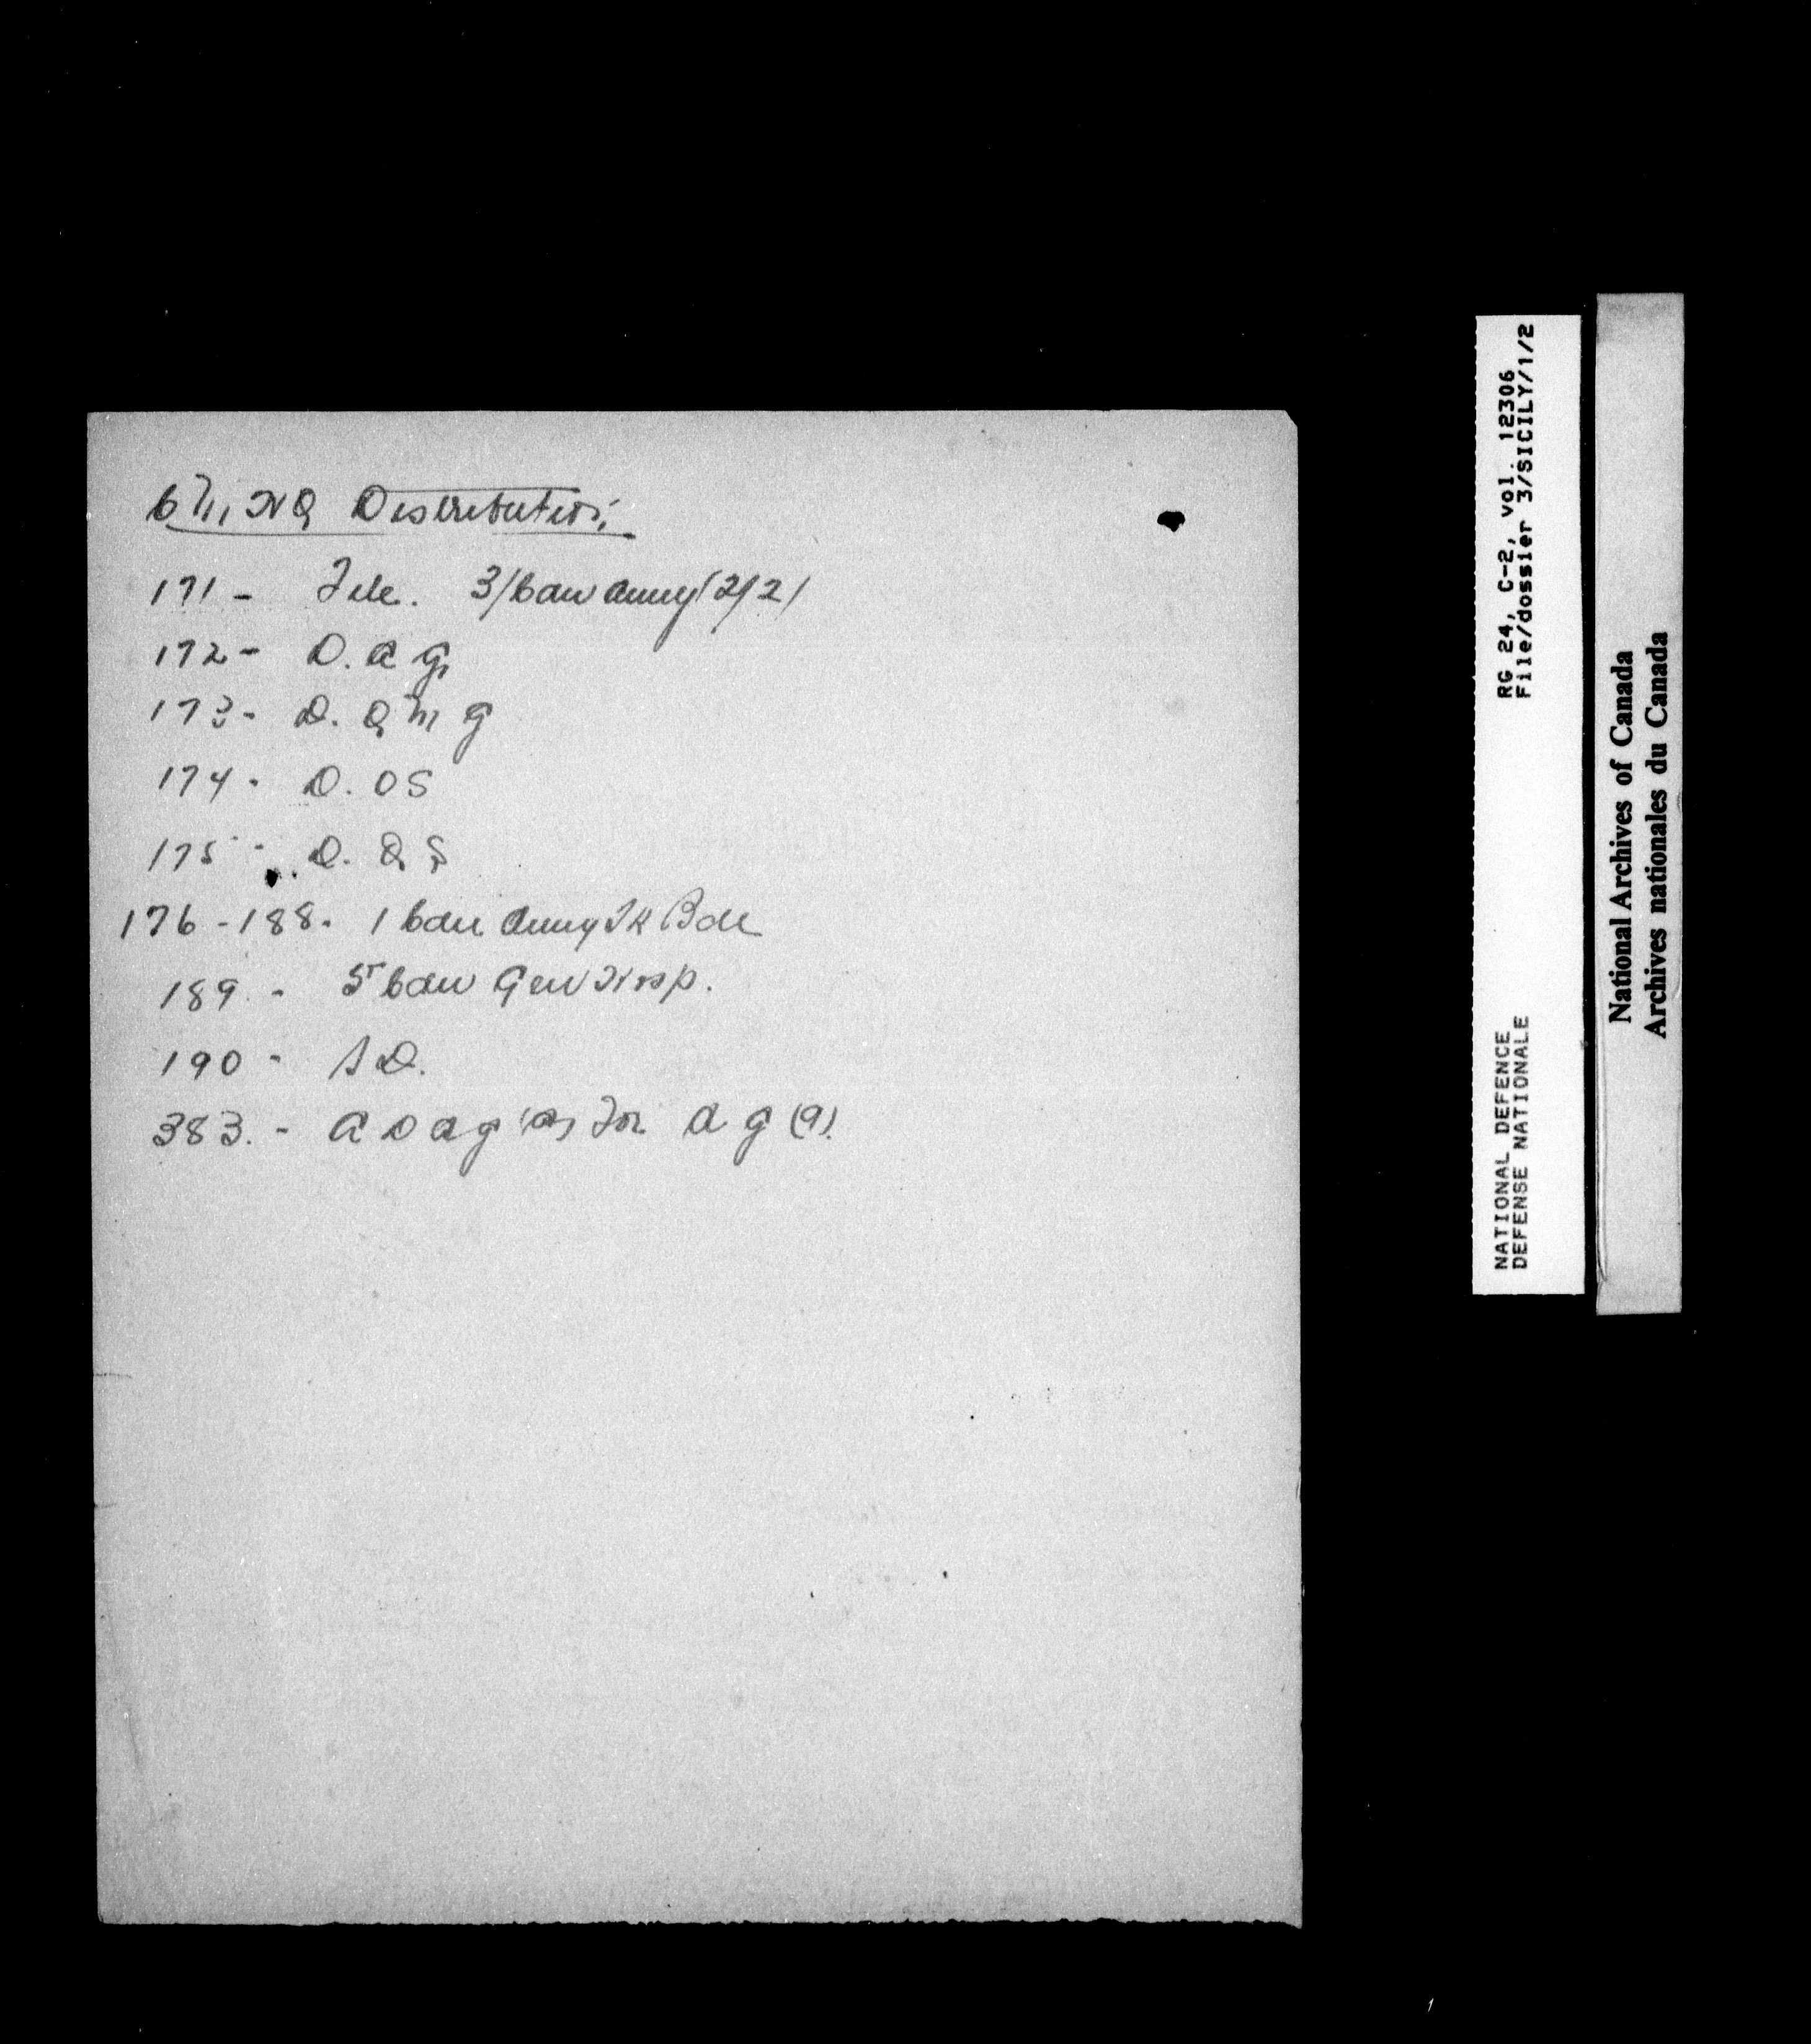 CMHQ Distribution
171 - File. 3/Can Army/2/2/
172 - D. A G
173 - D. Q M G
174 - D. O S
175 - D. Q S
176 - 188 - 1 Can Army Tk Bde
189 - 5 Can Gen Hosp.
190 - S D.
383. - A D A G for A G (9).
RG 24, C-2, vol. 12306
File/dossier 3/SICILY/1/2
NATIONAL DEFENCE
DEFENSE NATIONALE
National Archives of Canada
Archives nationales du Canada